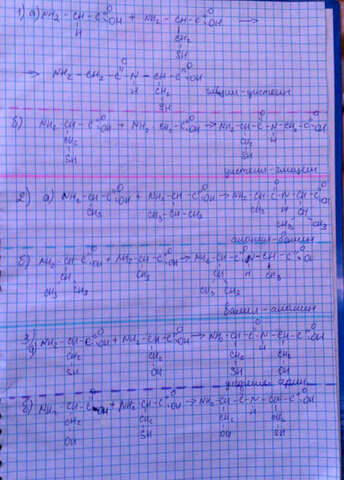 1) а) NH₂ - CH - C - OH + NH₂ - CH - C - OH →
O O
H CH₂
SH
→ NH₂ - CH₂ - C - N - CH - C - OH
O O
H CH₂
SH
глицин-цистеин
б) NH₂ - CH - C - OH + NH₂ - CH₂ - C - OH → NH₂ - CH - C - N - CH₂ - C - OH
CH₂ CH₂ H
SH SH
цистеин-глицин
2) а) NH₂ - CH - C - OH + NH₂ - CH - C - OH → NH₂ - CH - C - N - CH - C - OH
CH₃ CH₃ - CH - CH₃ CH₃ H CH
CH₃ CH₃
аланин-валин
б) NH₂ - CH - C - OH + NH₂ - CH - C - OH → NH₂ - CH - C - N - CH - C - OH
CH CH₃ CH H CH₃
CH₃ CH₃ CH₃ CH₃
валин-аланин
3) а) NH₂ - CH - C - OH + NH₂ - CH - C - OH → NH₂ - CH - C - N - CH - C - OH
CH₂ CH₂ CH₂ H CH₂
SH OH SH OH
цистеин-серин
б) NH₂ - CH - C - OH + NH₂ - CH - C - OH → NH₂ - CH - C - N - CH - C - OH
CH₂ CH₂ CH₂ H CH₂
OH SH OH SH